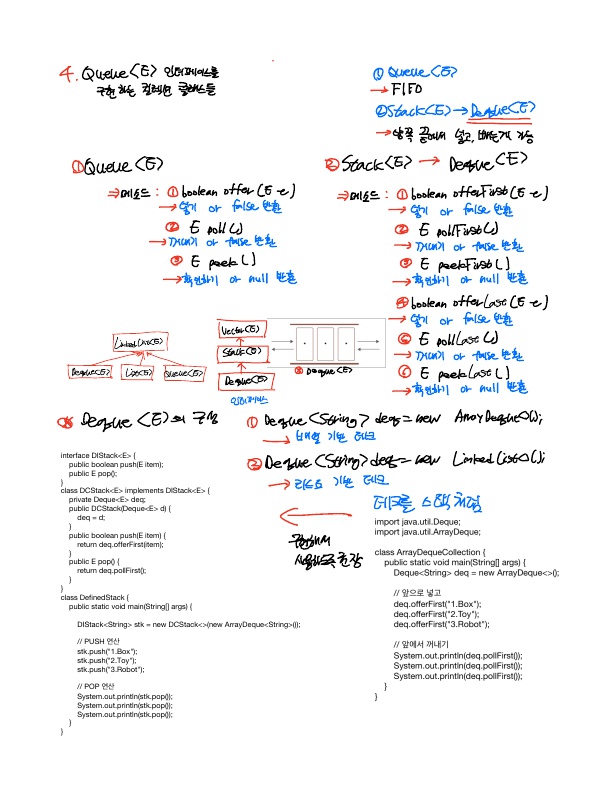 4. Queue<E> 인터페이스를
구현하는 컬렉션 클래스들
① Queue<E>
→ FIFO
② Stack<E> → Deque<E>
→ 양쪽 끝에서 넣고, 빼는게 가능
① Queue<E>
⇒ 메소드 : ① boolean offer(E e)
→ 넣기 or false 반환
② E poll()
→ 꺼내기 or false 반환
③ E peek()
→ 확인하기 or null 반환
② Stack<E> → Deque<E>
⇒ 메소드 : ① boolean offerFirst(E e)
→ 넣기 or false 반환
② E pollFirst()
→ 꺼내기 or false 반환
③ E peekFirst()
→ 확인하기 or null 반환
④ boolean offerLast(E e)
→ 넣기 or false 반환
E pollLast()
→ 꺼내기 or false 반환
E peekLast()
→ 확인하기 or null 반환
LinkedList<E>
Deque<E> List<E> Queue<E>
Vector<E>
Stack<E>
Deque<E>
인터페이스
Deque<E>
Deque<E>의 구성
① Deque<String> deq = new ArrayDeque<>();
→ 배열 기반 데크
② Deque<String> deq = new LinkedList<>();
→ 리스트 기반 데크
interface DIStack<E> {
public boolean push(E item);
public E pop();
}
class DCStack<E> implements DIStack<E> {
private Deque<E> deq;
public DCStack(Deque<E> d) {
deq = d;
}
public boolean push(E item) {
return deq.offerFirst(item);
}
public E pop() {
return deq.pollFirst();
}
}
class DefinedStack {
public static void main(String[] args) {
DIStack<String> stk = new DCStack<>(new ArrayDeque<String>());
// PUSH 연산
stk.push("1.Box");
stk.push("2.Toy");
stk.push("3.Robot");
// POP 연산
System.out.println(stk.pop());
System.out.println(stk.pop());
System.out.println(stk.pop());
}
}
구현해서
사용하도록 권장
데크를 스택처럼
import java.util.Deque;
import java.util.ArrayDeque;
class ArrayDequeCollection {
public static void main(String[] args) {
Deque<String> deq = new ArrayDeque<>();
// 앞으로 넣고
deq.offerFirst("1.Box");
deq.offerFirst("2.Toy");
deq.offerFirst("3.Robot");
// 앞에서 꺼내기
System.out.println(deq.pollFirst());
System.out.println(deq.pollFirst());
System.out.println(deq.pollFirst());
}
}